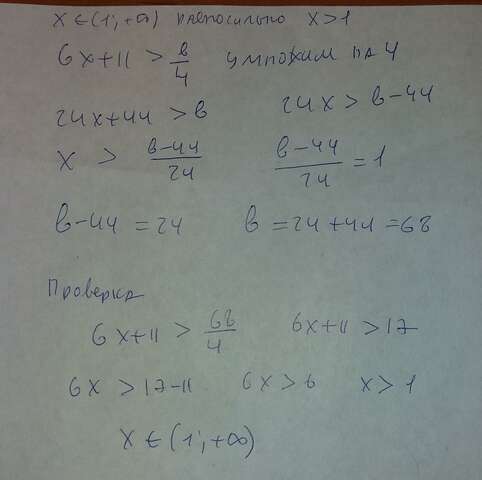 x ∈ (1; +∞) равносильно x > 1
6x + 11 > в/4 умножим на 4
24x + 44 > в 24x > в - 44
x > в-44/24 в-44/24 = 1
в - 44 = 24 в = 24 + 44 = 68
Проверка
6x + 11 > 68/4 6x + 11 > 17
6x > 17 - 11 6x > 6 x > 1
x ∈ (1; +∞)